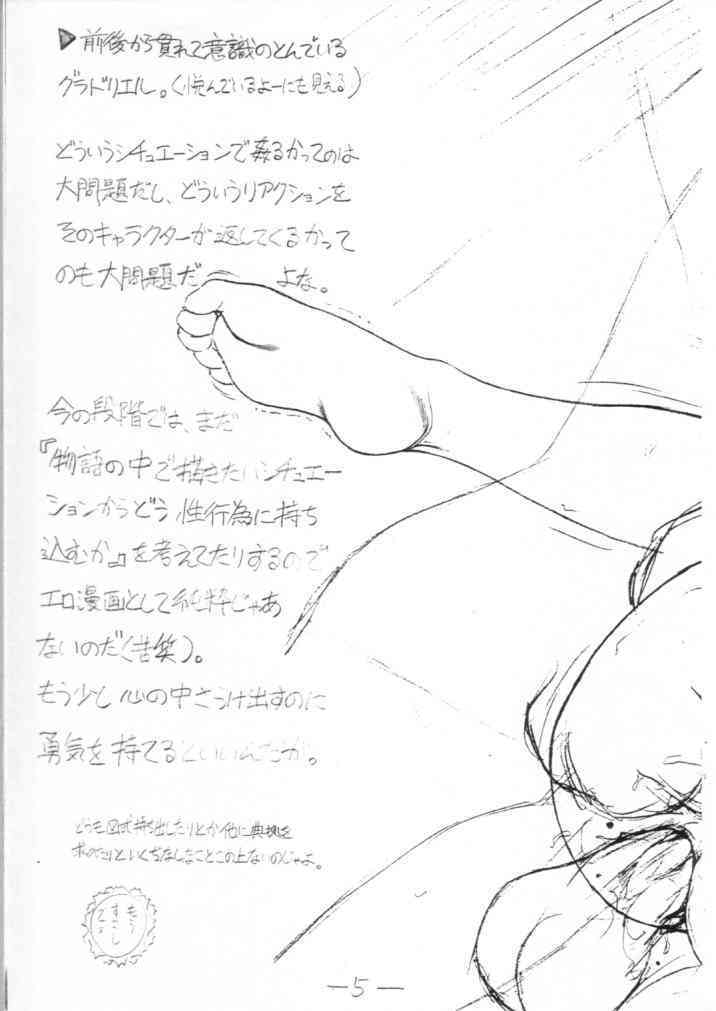 ▶前後から貫れて意識のとんでいる
グラドリエル。(悦んでいるよーにも見える)
どういうシチュエーションで姦るかってのは
大問題だし、どういうリアクションを
そのキャラクターが返してくるかって
のも大問題だ よな。
今の段階では、まだ
『物語の中で描きたいシチュエー
ションからどう性行為に持ち
込むか』を考えてたりするので
エロ漫画として純粋じゃあ
ないのだ(苦笑)。
もう少し心の中さらけ出すのに
勇気を持てるといいんだが。
どうも図式持ち出したりとか他に典拠を
求めたりといくぢなしなことこの上ないのじゃよ。
もう
すこし
—5—